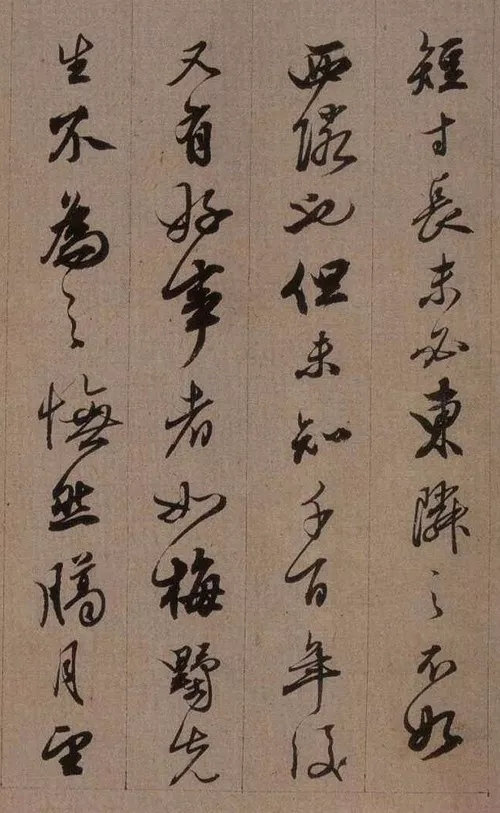 短寸長未必東隣之不如
西隣也但未知千百年後
又有好事者如梅野先
生不為之憮然臈月望